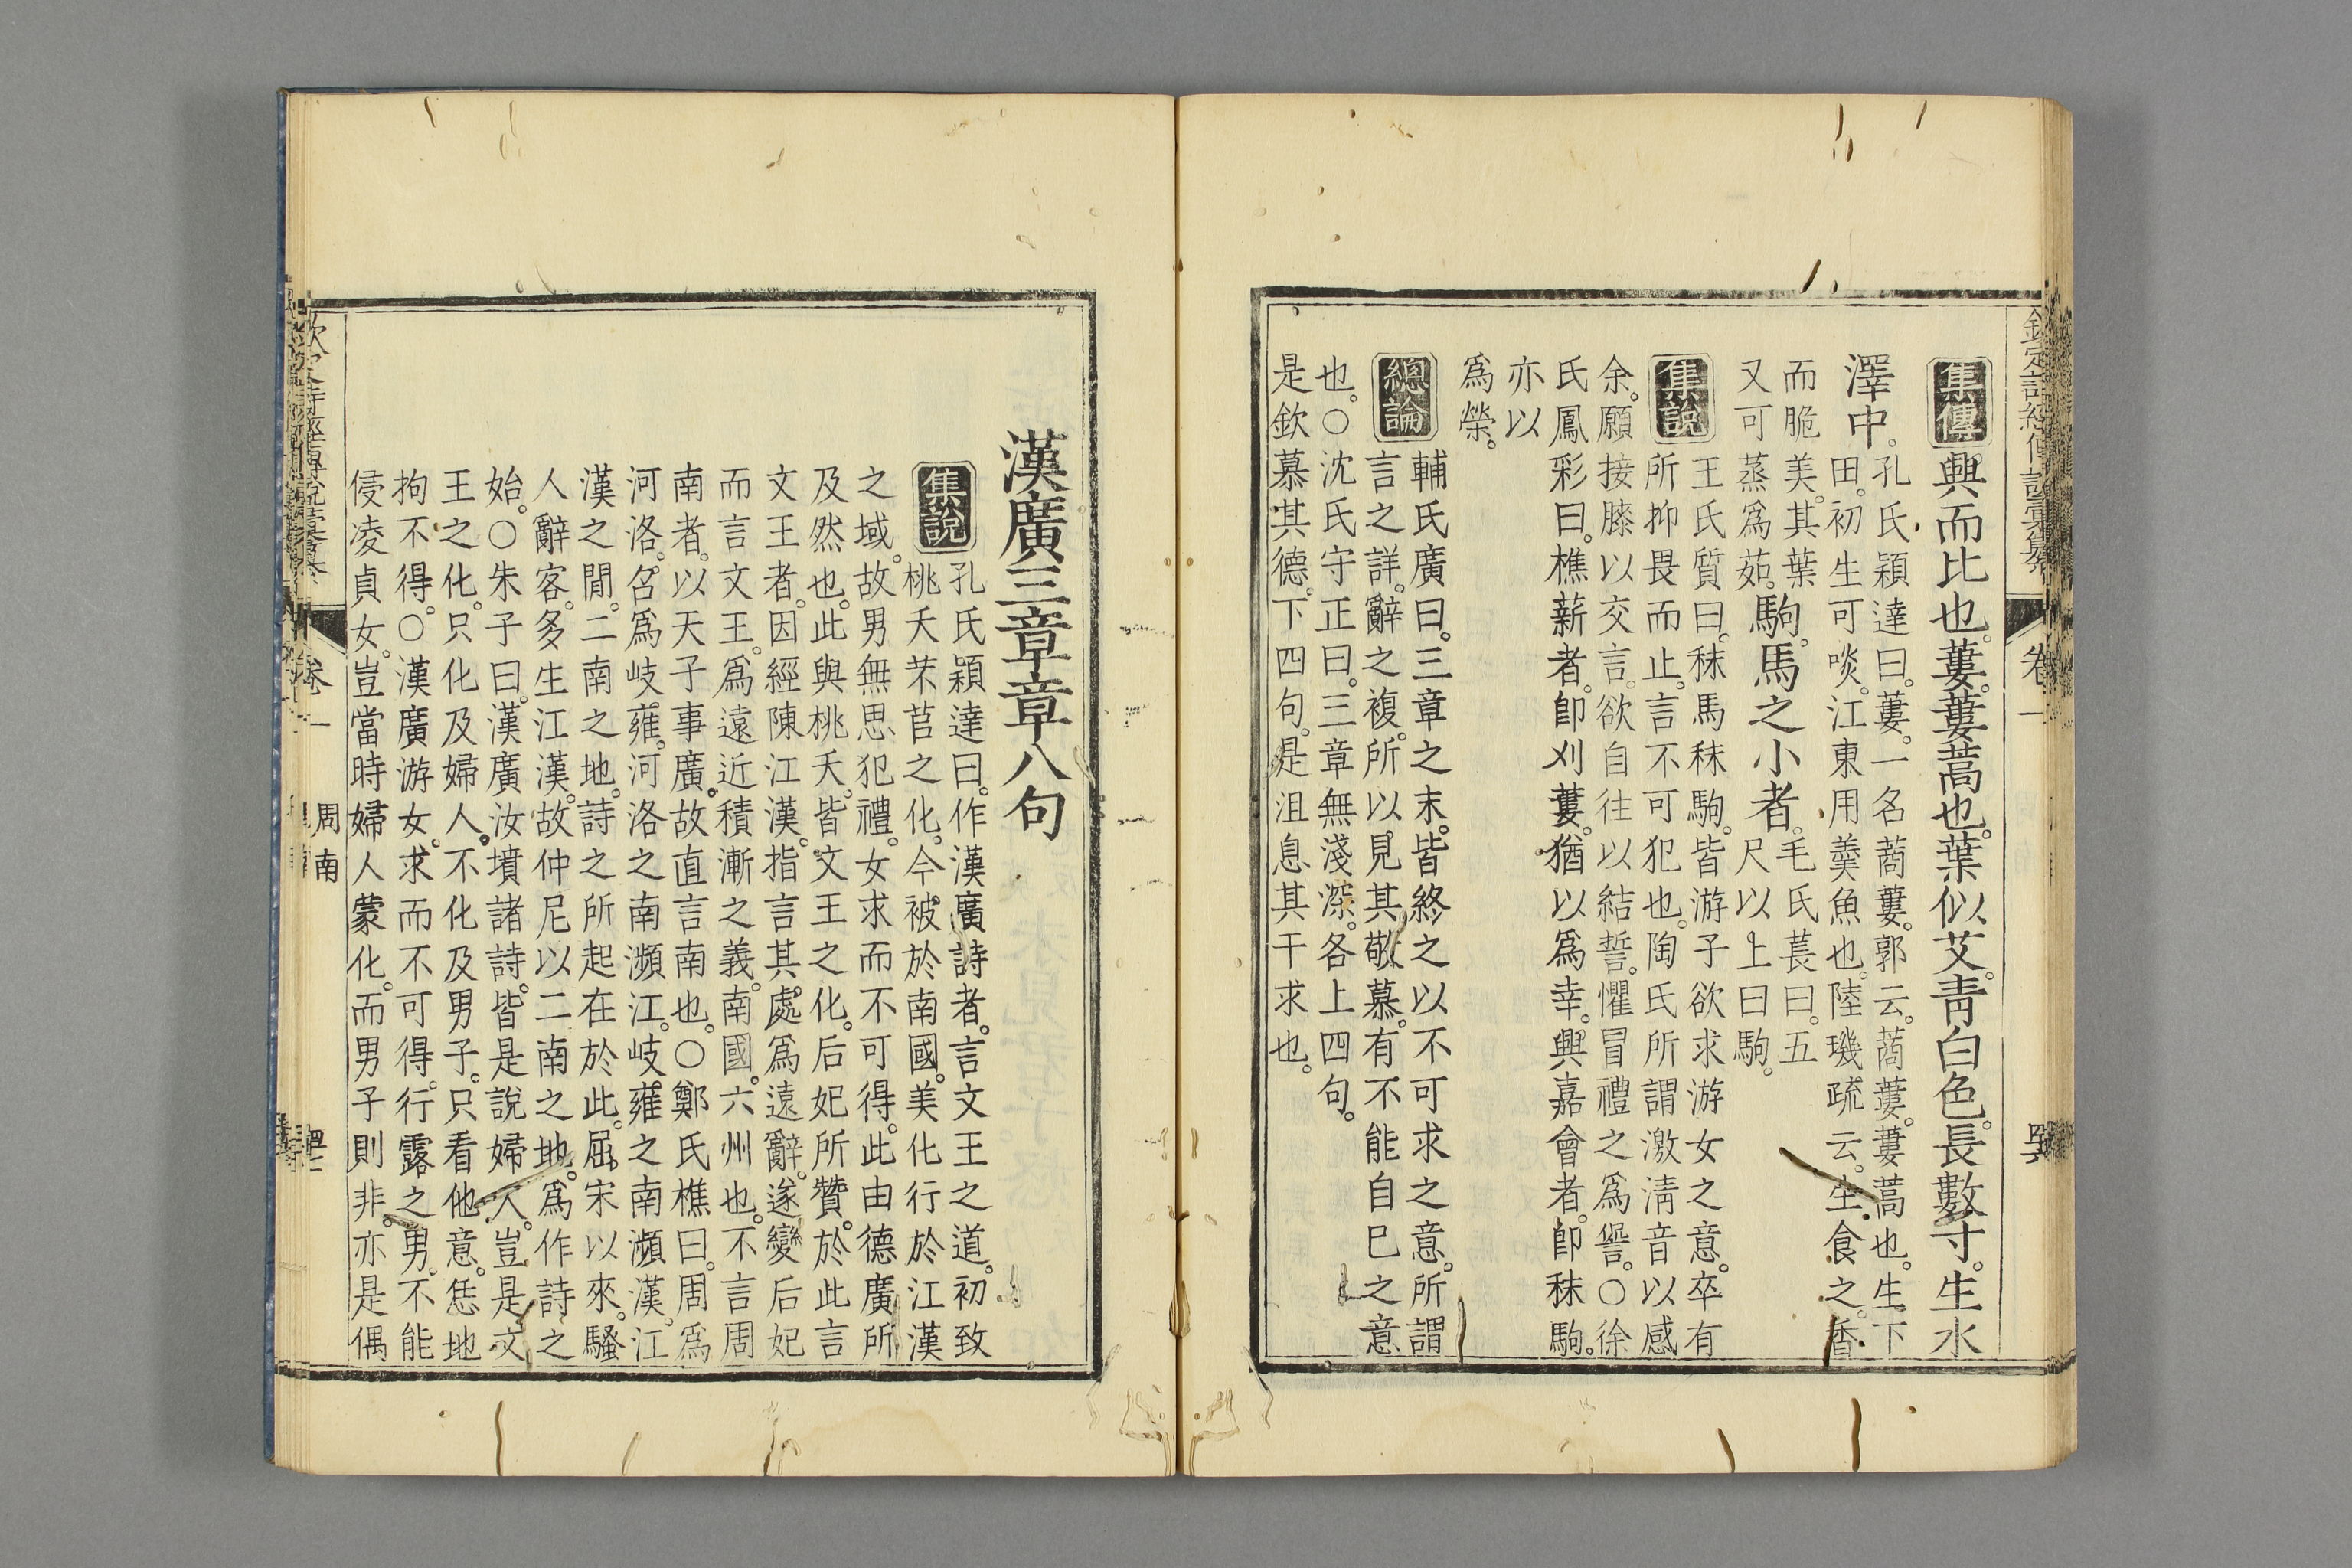 欽定詩經傳說彙纂 卷一
集傳 興而比也。蔞。蔞蒿也。葉似艾。靑白色。長數寸。生水
澤中。孔氏穎達曰。蔞。一名蔏蔞。郭云。蔏蔞。蔞蒿也。生下
田。初生可啖。江東用羹魚也。陸璣疏云。生食之。香
而脆美。其葉
又可蒸爲茹。駒。馬之小者。毛氏萇曰。五
尺以上曰駒。
集說 王氏質曰。秣馬秣駒。皆游子欲求游女之意。卒有
所抑畏而止。言不可犯也。陶氏所謂激淸音以感
余。願接膝以交言。欲自往以結誓。懼冒禮之爲諐。○徐
氏鳳彩曰。樵薪者。卽刈蔞。猶以爲幸。興嘉會者。卽秣駒。
亦以
爲榮。
總論 輔氏廣曰。三章之末。皆終之以不可求之意。所謂
言之詳。辭之複。所以見其敬慕。有不能自已之意
也。○沈氏守正曰。三章無淺深。各上四句。
是欽慕其德。下四句。是沮息其干求也。
漢廣三章章八句
集說 孔氏穎達曰。作漢廣詩者。言文王之道。初致
桃夭芣苢之化。今被於南國。美化行於江漢
之域。故男無思犯禮。女求而不可得。此由德廣所
及然也。此與桃夭。皆文王之化。后妃所贊。於此言
文王者。因經陳江漢。指言其處。爲遠辭。遂變后妃
而言文王。爲遠近積漸之義。南國。六州也。不言周
南者。以天子事廣。故直言南也。○鄭氏樵曰。周爲
河洛。召爲岐雍。河洛之南瀕江。岐雍之南瀕漢。江
漢之閒。二南之地。詩之所起在於此。屈宋以來。騷
人辭客。多生江漢。故仲尼以二南之地。爲作詩之
始。○朱子曰。漢廣汝墳諸詩。皆是說婦人。豈是文
王之化。只化及婦人。不化及男子。只看他意。恁地
拘不得。○漢廣游女。求而不可得。行露之男。不能
侵凌貞女。豈當時婦人蒙化。而男子則非。亦是偶
卷一 周南